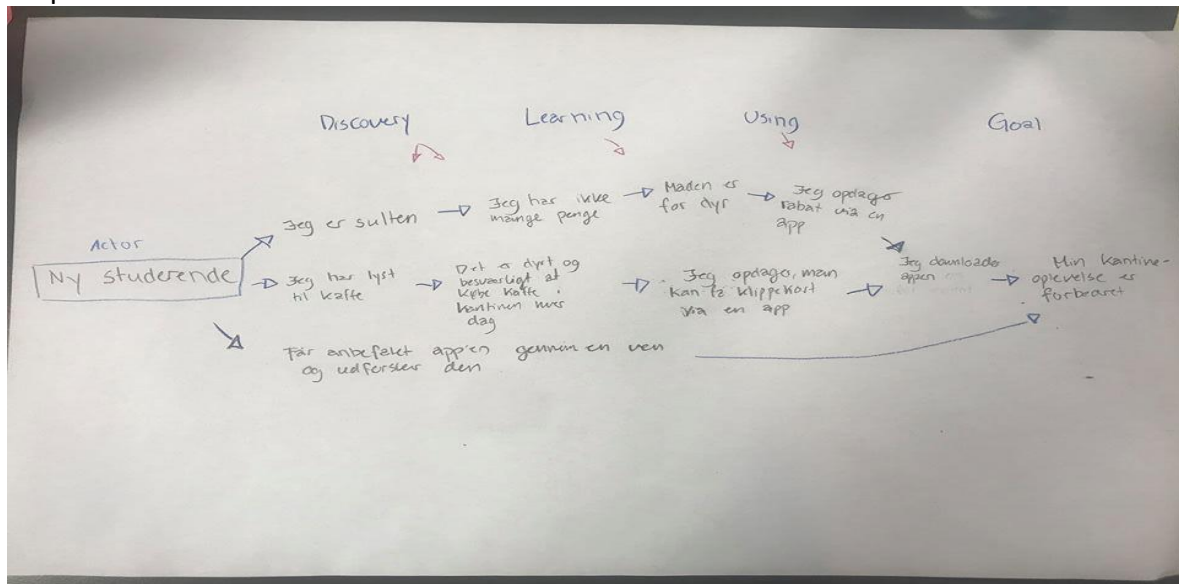 Discovery
Learning
Using
Goal
Actor
Ny studerende
Jeg er sulten
Jeg har ikke
mange penge
Maden er
for dyr
Jeg opdager
rabat via en
app
Jeg har lyst
til kaffe
Det er dyrt og
besværligt at
købe kaffe i
kantinen hver
dag
Jeg opdager, man
kan få klippekort
via en app
Jeg downloader
appen
Min kantine-
oplevelse er
forbedret
Får anbefalet app'en gennem en ven
og udforsker den